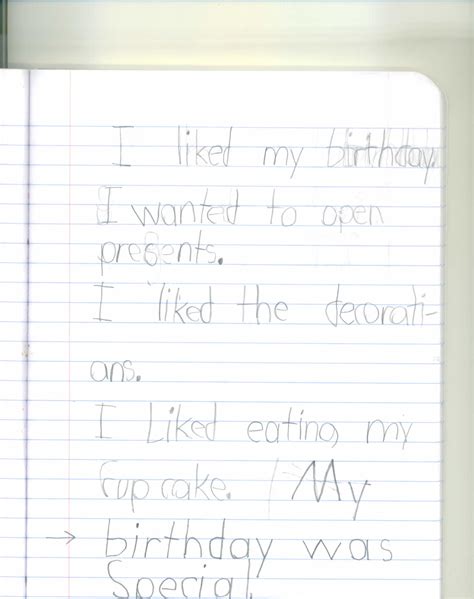 I liked my birthday
I wanted to open
presents.
I liked the decorati-
ans.
I Liked eating my
Cup cake. My
→ birthday was
Special.